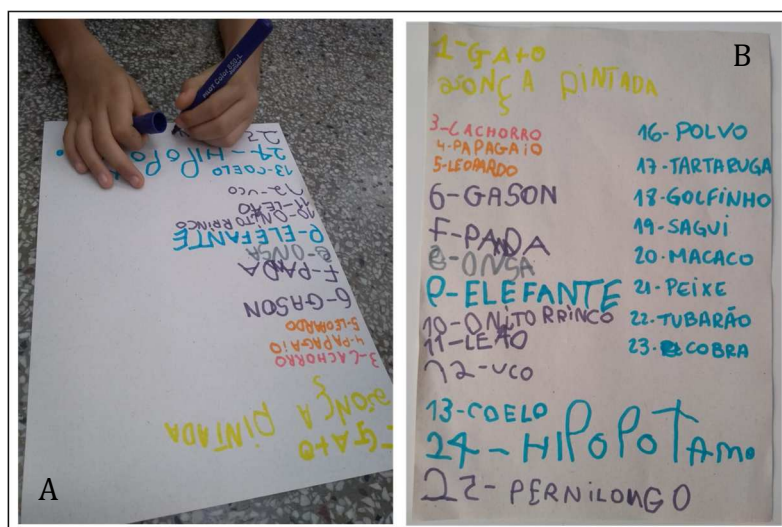 A
-GA+O
2ONÇA PINTADA
3-CACHORRO
4-PAPAGAiO
5-LEOPARDO
6-GASON
F-PANDA
8-ONSA
9-ELEFANTE
10-ONiTORRiNCO
11-LEÃO
12-UCO
13-COELO
24-HIPOPO
22
B
1-GA+O
2ONÇA PiNTADA
3-CACHORRO
4-PAPAGAiO
5-LEOPARDO
6-GASON
F-PANDA
8-ONSA
9-ELEFANTE
10-ONiTORRiNCO
11-LEÃO
12-UCO
13-COELO
24-HiPOPOTAmo
22-PERNiLONGO
16-POLVO
17-TARTARUGA
18-GOLFiNHO
19-SAGUi
20-MACACO
21-PEiXE
22-TUBARÃO
23-COBRA